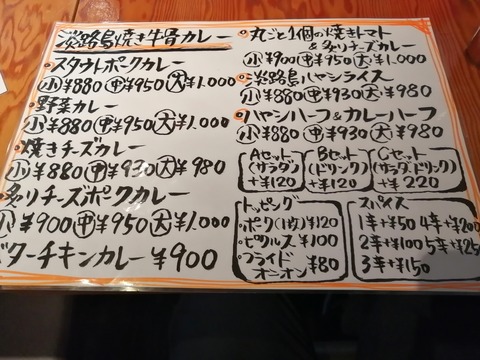 淡路島焼き牛骨カレー
スタウトポークカレー
小¥880 中¥950 大¥1.000
野菜カレー
小¥880 中¥950 大¥1.000
焼きチーズカレー
小¥880 中¥930 大¥980
炙りチーズポークカレー
小¥900 中¥950 大¥1.000
バターチキンカレー ¥900
丸ごと1個の焼きトマト
&炙りチーズカレー
小¥900 中¥950 大¥1.000
淡路島ハヤシライス
小¥880 中¥930 大¥980
ハヤシハーフ&カレーハーフ
小¥880 中¥930 大¥980
Aセット
(サラダ)
+¥120
Bセット
(ドリンク)
+¥120
Cセット
(サラダ,ドリンク)
+¥220
トッピング
・ポーク(1枚)¥120
・ピクルス ¥100
・フライド
オニオン ¥80
スパイス
1辛+¥50 4辛+¥200
2辛+¥100 5辛+¥250
3辛+¥150